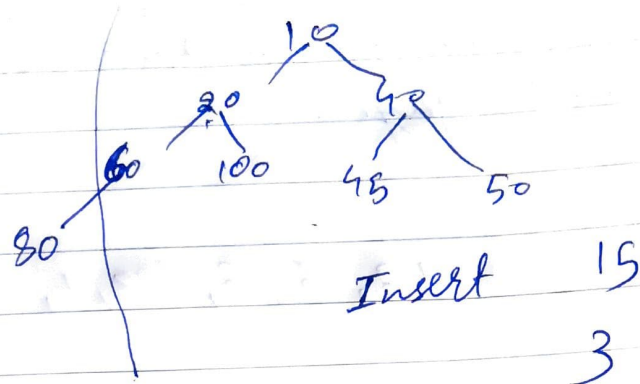 10
20 40
60 100 45 50
80
Insert 15
3